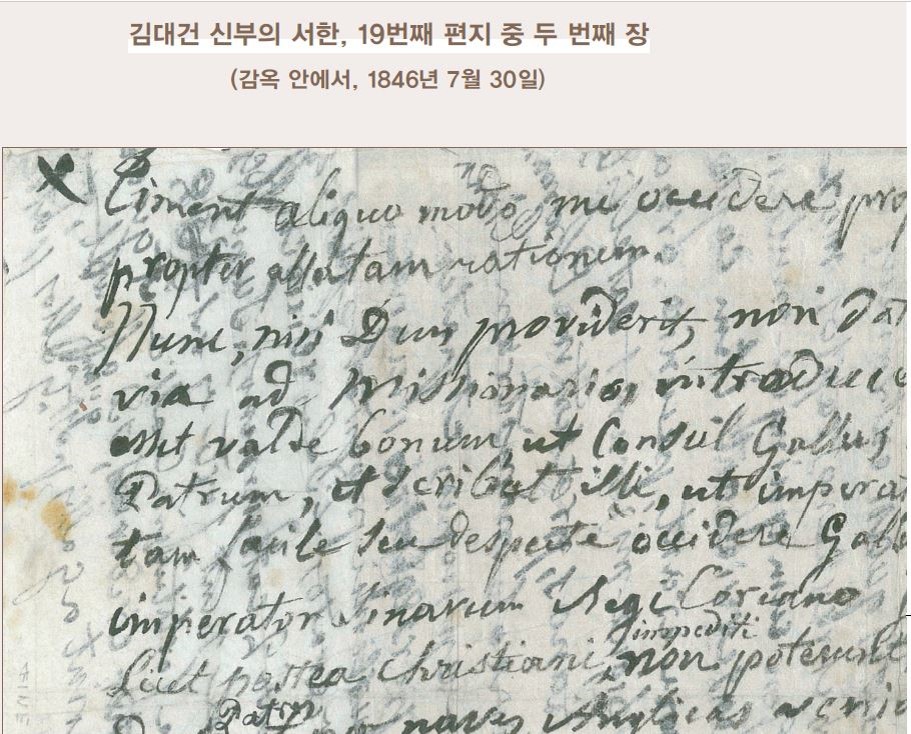 김대건 신부의 서한, 19번째 편지 중 두 번째 장
(감옥 안에서, 1846년 7월 30일)
Timent aliquo modo me occidere
propter allatam rationem.
Nunc, nisi Deus providerit, non
via ad Missionarios
esset valde bonum, ut Consul Gallus
Patrum, et scribat illi, ut
tam facile seu despecte occidere
imperator Sinarum Regi Coreano
impediti
licet postea Christiani, non poterunt
Patru
naves Anglicas